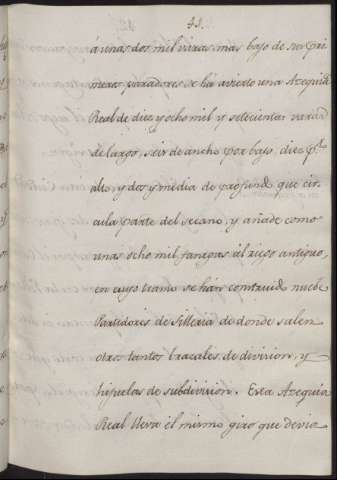 41.
á unas dos mil varas mas bajo de sus pri
meros paradores se há avierto una Azequia
Real de diez y ocho mil y setecientas varas
de largo, seis de ancho por bajo, diez pr.
alto, y dos y media de profund. que cir
cula parte del secano, y añade como
unas ocho mil fanegas al riego antiguo,
en cuyo tramo se hán contruido nuebe
Partidores de Silleria de donde salen
otros tantos brazales de division, y
hijuelas de subdivision. Esta Azequia
Real lleva el mismo giro que devia